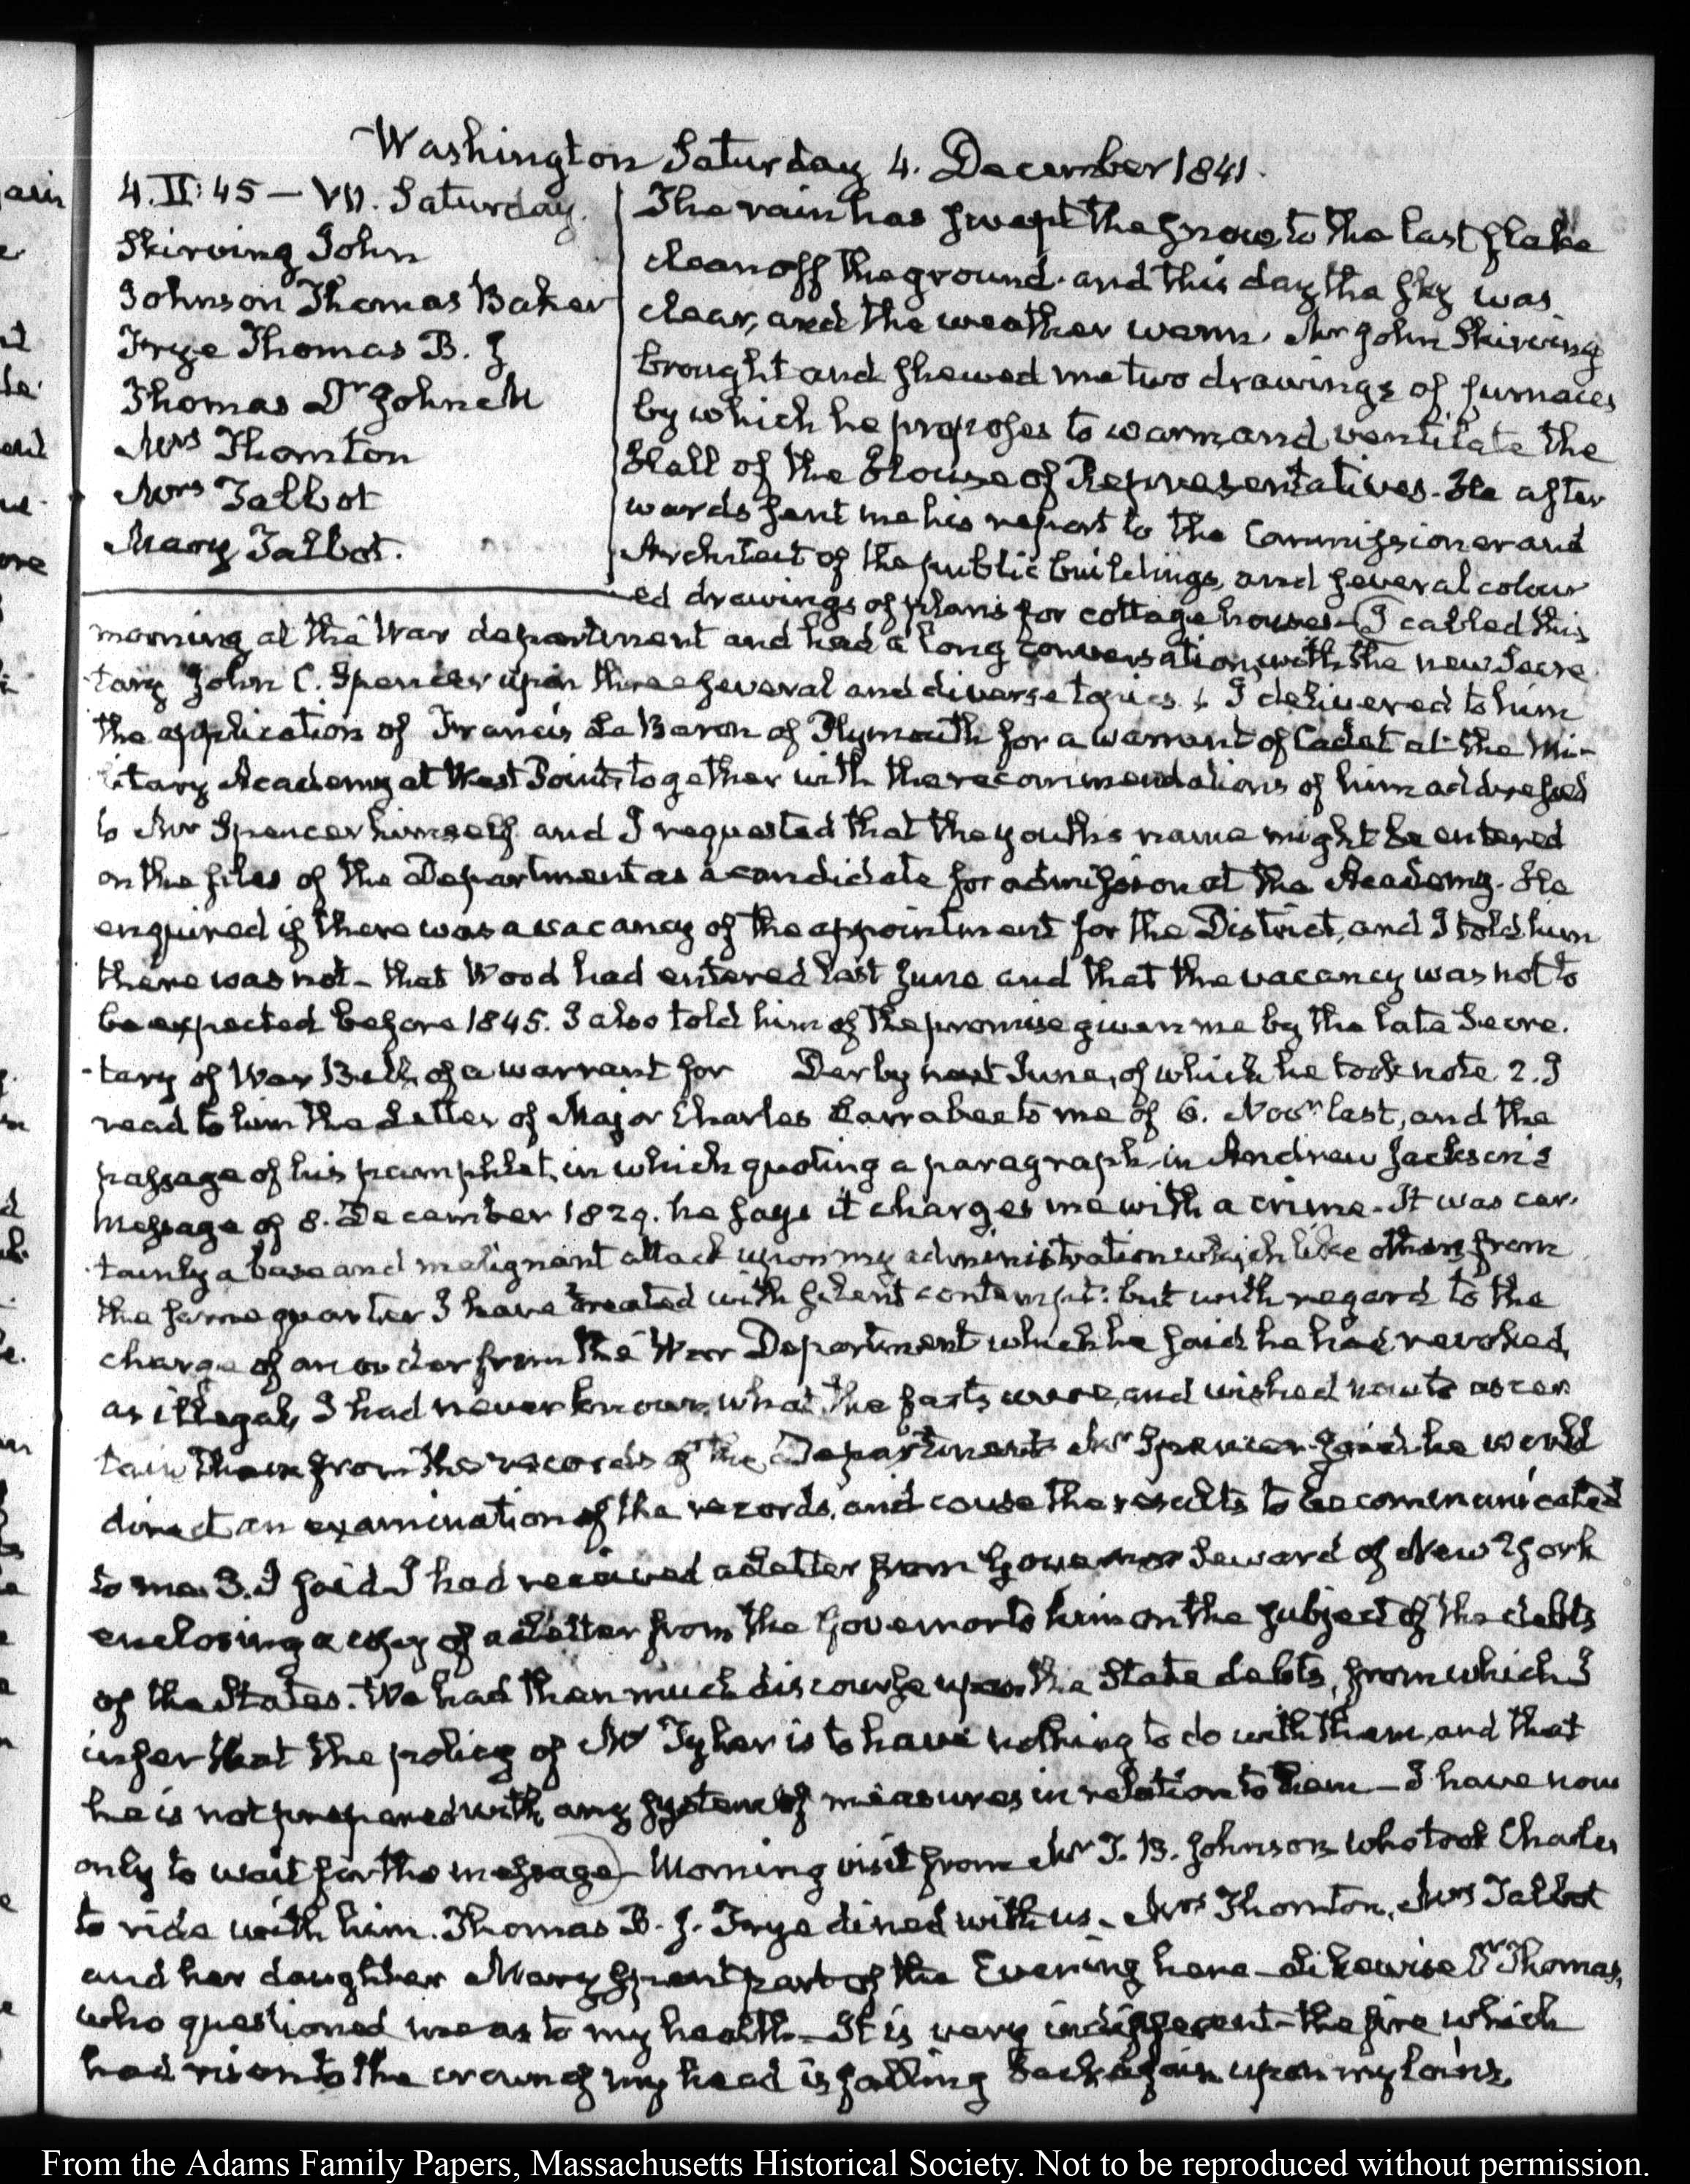 Washington Saturday 4. December 1841.
4. II: 45 — VII. Saturday.
Skirving John
Johnson Thomas Baker
Frye Thomas B. J
Thomas Dr John M
Mrs Thornton
Mrs Talbot
Mary Talbot.
The rain has swept the snow, to the last flake
clean off the ground. and this day the sky was
clear, and the weather warm. Mr John Skirving
brought and shewed me two drawings of furnaces
by which he proposes to warm and ventilate the
Hall of the House of Representatives. He after
wards sent me his report to the Commissioner and
Architect of the public buildings, and several colour
ed drawings of plans for cottage houses — I called this
morning at the War department and had a long conversation, with the new Secre
tary John C. Spencer upon three several and diverse topics. 1 I delivered to him
the application of Francis Le Baron of Plymouth for a warrant of Cadet at the Mi-
litary Academy at West Point, together with the recommendations of him addressed
to Mr Spencer himself and I requested that the youths name might be entered
on the files of the Department as a candidate for admission at the Academy. He
enquired if there was a vacancy of the appointment for the District, and I told him
there was not — that Wood had entered last June and that the vacancy was not to
be expected before 1845. I also told him of the promise given me by the late Secre.
-tary of War Bell, of a warrant for Derby next June, of which he took note 2. I
read to him the Letter of Major Charles Larrabee to me of 6. Novr last, and the
passage of his pamphlet, in which quoting a paragraph in Andrew Jackson's
Message of 8. December 1829. he says it charges me with a crime. It was cer.
tainly a base and malignant attack upon my administration which like others from
the same quarter I have treated with silent contempt: but with regard to the
charge of an order from the War Department which he said he had revoked,
as illegal, I had never known what the facts were, and wished now to ascer
tain them from the records of the Department. Mr Spencer said he would
direct an examination of the records, and cause the results to be communicated
to me. 3. I said I had received a Letter from Governor Seward of New York
enclosing a copy of a Letter from the Governor to him on the subject of the debts
of the States. We had then much discourse upon the State debts, from which I
infer that the policy of Mr Tyler is to have nothing to do with them, and that
he is not prepared with any system of measures in relation to them — I have now
only to wait for the message) — Morning visit from Mr T. B. Johnson who took Charles
to ride with him. Thomas B. J. Frye dined with us. Mrs Thornton, Mrs Talbot
and her daughter Mary spent part of the Evening here — likewise Dr Thomas,
who questioned me as to my health — It is very indifferent — the fire which
had risen to the crown of my head is falling back again upon my loins.
From the Adams Family Papers, Massachusetts Historical Society. Not to be reproduced without permission.